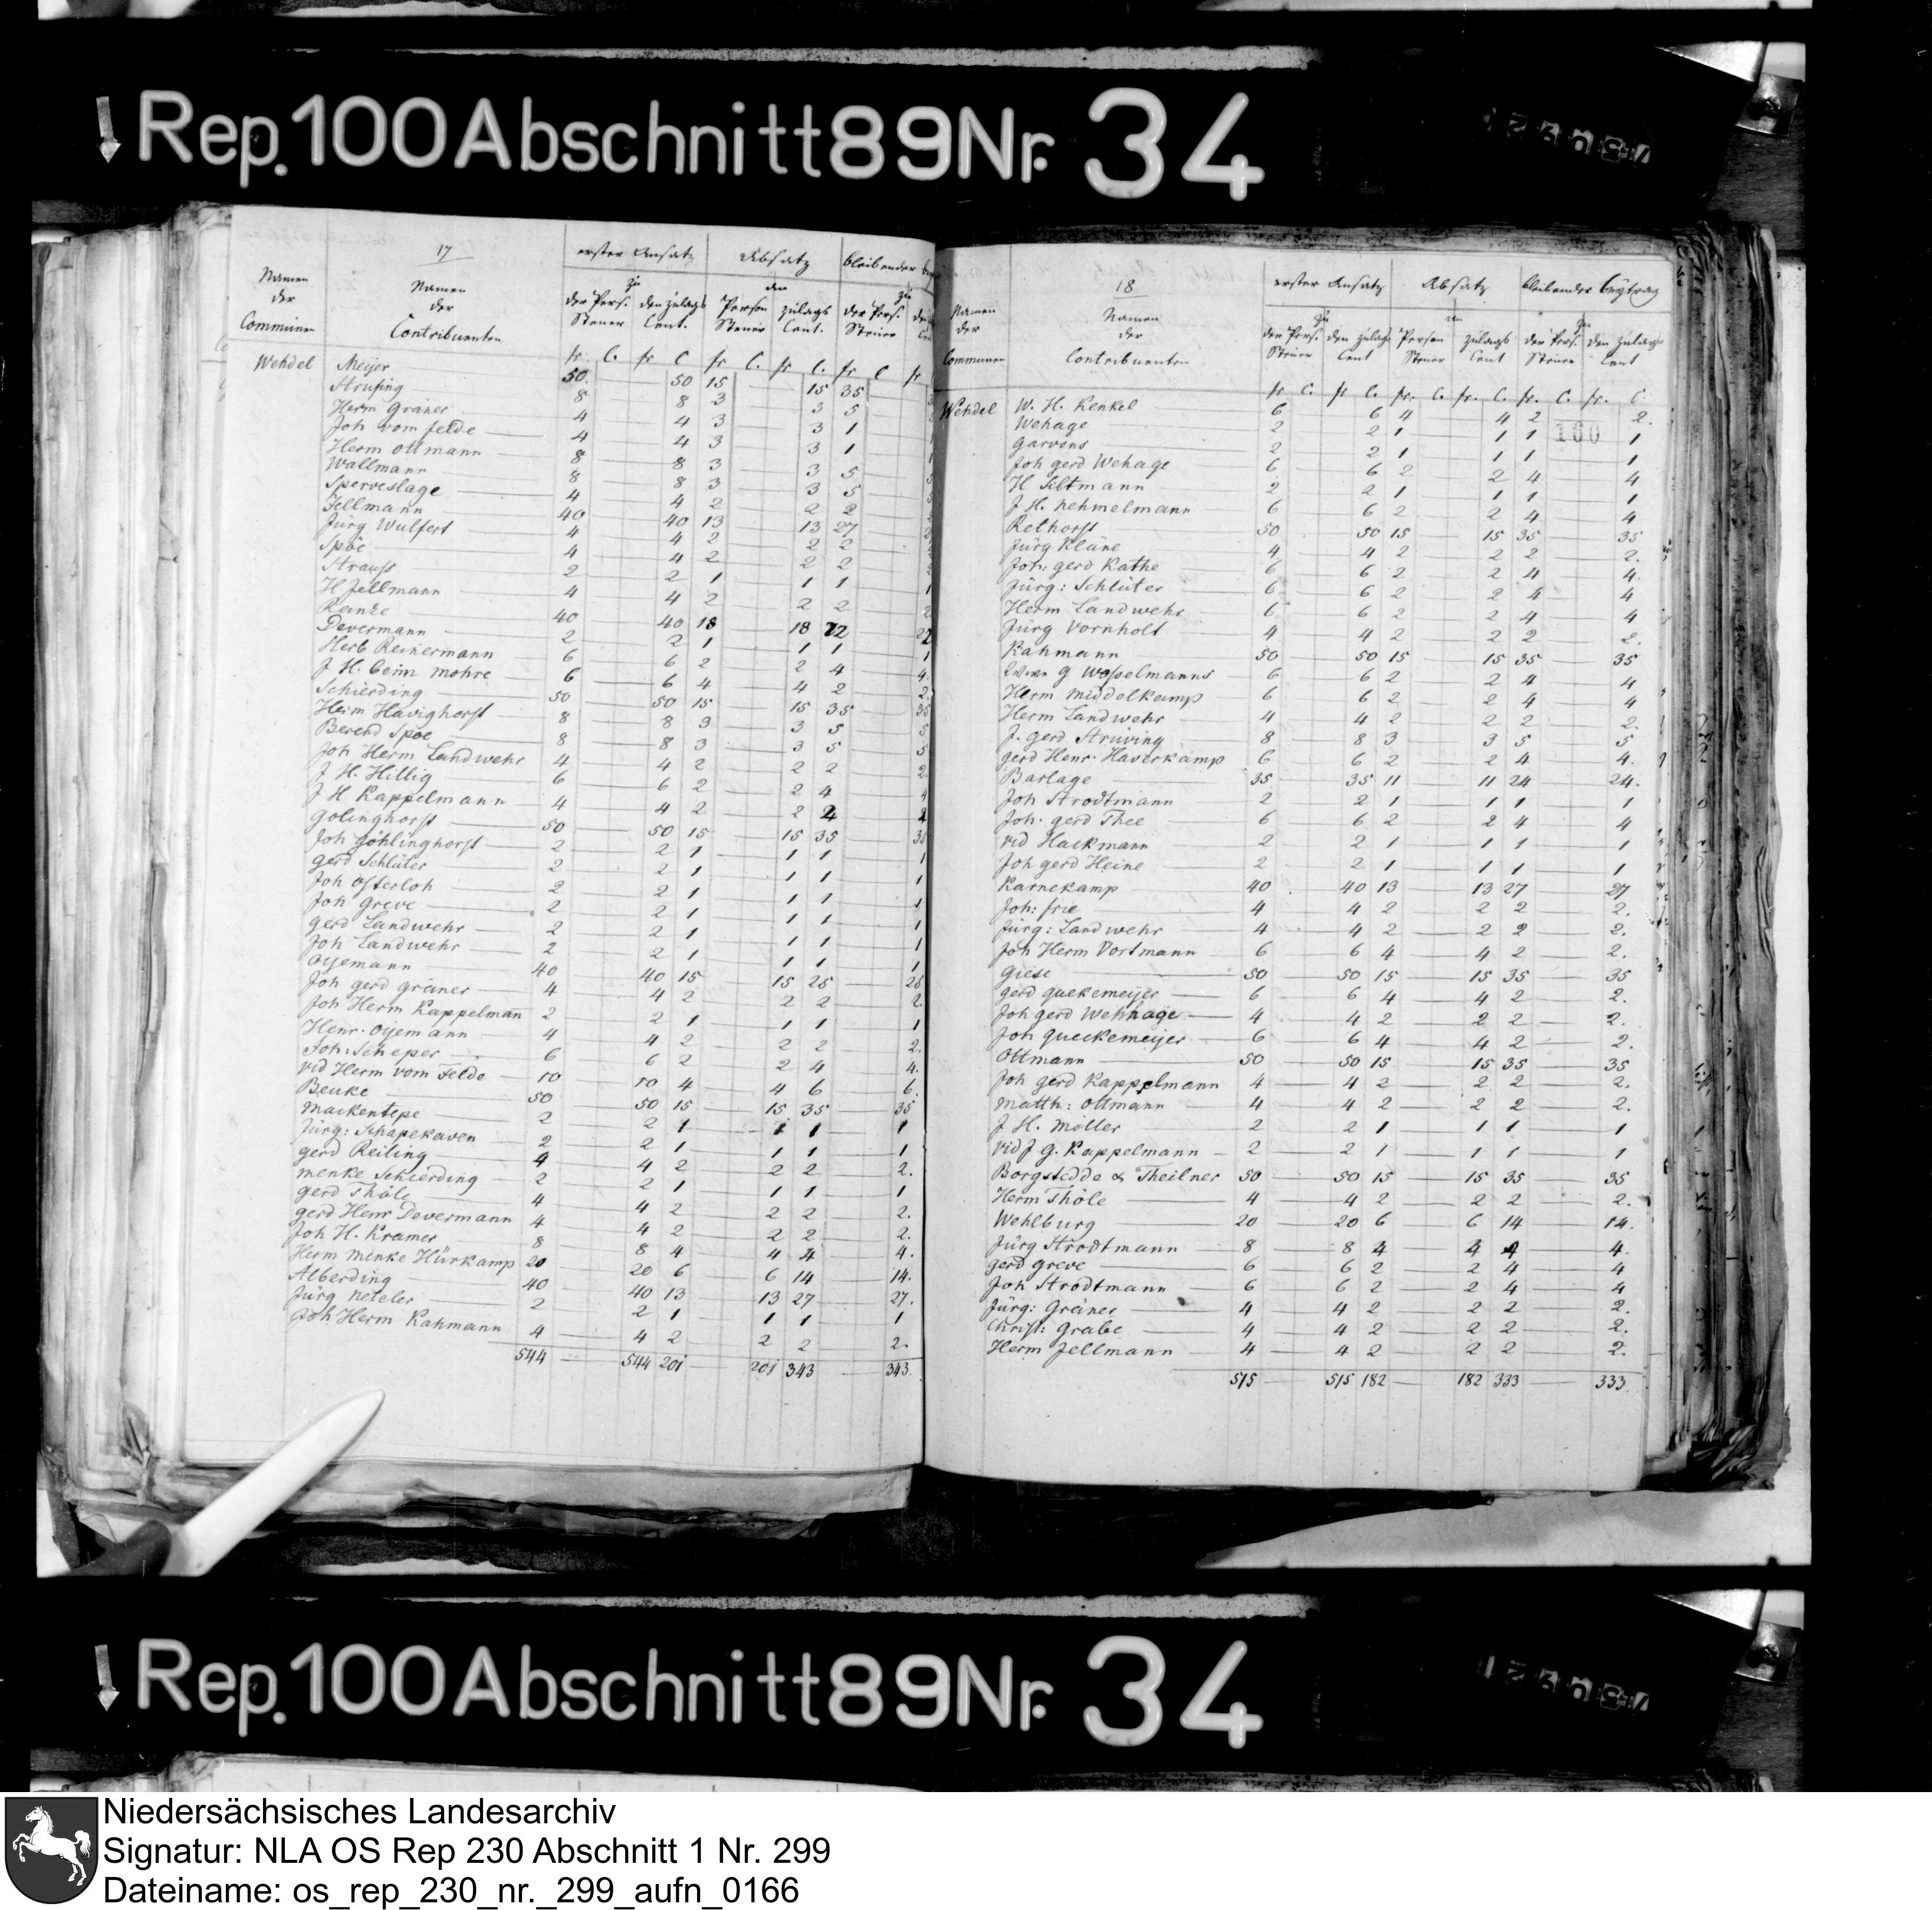 Rep.100 Abschnitt 89 Nr. 34
17
erster Ansatz Absatz bleibender
Namen Namen zu den zu
der der der Pers. den zulags Person zulags der Pers.
Communen Contribuenten Steuer Cent. Steuer Cent. Steuer
fr. C. fr C fr C. fr C. fr C fr
Wehdel Meijer 50. 50 15 15 35
Strufing 8 8 3 3 5
Herm Gräner 4 4 3 3 1
Joh vom felde 4 4 3 3 1
Herm Ottmann 8 8 3 3 5
Wallmann 8 8 3 3 5
Sperveslage 4 4 2 2 2
Jellmann 40 40 13 13 27
Jürg Wulfert 4 4 2 2 2
Spöe 4 4 2 2 2
Strauss 2 2 1 1 1
H Jellmann 4 4 2 2 2 2
Renze 40 40 18 18 22 22
Devermann 2 2 1 1 1 1
Herb Reinermann 6 6 2 2 4 4.
J H. beim mohre 6 6 4 4 2 2
Schierding 50 50 15 15 35 35
Heim Havighorst 8 8 3 3 5 5
Berend Spöe 8 8 3 3 5 5
Joh Herm Landwehr 4 4 2 2 2 2.
J H. Hillig 6 6 2 2 4 4
J H Kappelmann 4 4 2 2 2 2
Golinghorst 50 50 15 15 35 35
Joh Göhlinghorst 2 2 1 1 1 1
gerd Schlüter 2 2 1 1 1 1
Joh Osterloh 2 2 1 1 1 1
Joh Greve 2 2 1 1 1 1
gerd Landwehr 2 2 1 1 1 1
Joh Landwehr 2 2 1 1 1 1
Oijemann 40 40 15 15 25 25
Joh gerd gräner 4 4 2 2 2 2
Joh Herm Kappelman 2 2 1 1 1 1
Henr. Oijemann 4 4 2 2 2 2.
Joh: Scheper 6 6 2 2 4 4.
vid Herm vom Felde 10 10 4 4 6 6.
Beuke 50 50 15 15 35 35
Mackentepe 2 2 1 1 1 1
Jürg: Schapekaven 2 2 1 1 1 1
gerd Reiling 4 4 2 2 2 2.
menke Schierding 2 2 1 1 1 1
gerd Thöle 4 4 2 2 2 2.
gerd Henr Devermann 4 4 2 2 2 2.
Joh H. Kramer 8 8 4 4 4 4.
Herm menke Hürkamp 20 20 6 6 14 14.
Alberding 40 40 13 13 27 27.
Jürg neteler 2 2 1 1 1 1
Joh Herm Kahmann 4 4 2 2 2 2.
544 544 201 201 343 343.
18
erster Ansatz Absatz bleibender beytrag
Namen Namen zu den zu
der der der Pers. den zulags Person zulags der Pers. den zulags
Communen Contribuenten Steuer Cent Steuer Cent Steuer Cent
fr C. fr C. fr. C. fr. C. fr. C. fr. C.
Wehdel W. H. Renkel 6 6 4 4 2 2.
Wehage 2 2 1 1 1 1
100
garvens 2 2 1 1 1 1
Joh gerd Wehage 6 6 2 2 4 4
H Siltmann 2 2 1 1 1 1
J H. nehmelmann 6 6 2 2 4 4
Rethorst 50 50 15 15 35 35
Jürg Kläne 4 4 2 2 2 2.
Joh: gerd Kathe 6 6 2 2 4 4.
Jürg: Schlüter 6 6 2 2 4 4
Herm Landwehr 6 6 2 2 4 4
Jürg Vornholt 4 4 2 2 2 2.
Kahmann 50 50 15 15 35 35
g Wosselmanns 6 6 2 2 4 4
Herm Middelkamp 6 6 2 2 4 4
Herm Landwehr 4 4 2 2 2 2.
J. gerd Strüving 8 8 3 3 5 5
gerd Henr. Haverkamp 6 6 2 2 4 4.
Barlage 35 35 11 11 24 24.
Joh Strodtmann 2 2 1 1 1 1
Joh. gerd Thee 6 6 2 2 4 4
vid Hackmann 2 2 1 1 1 1
Joh gerd Heine 2 2 1 1 1 1
Karnekamp 40 40 13 13 27 27
Joh: frie 4 4 2 2 2 2.
Jürg: Landwehr 4 4 2 2 2 2.
Joh Herm Vortmann 6 6 4 4 2 2.
Giese 50 50 15 15 35 35
gerd quekemeijer 6 6 4 4 2 2.
Joh gerd Wehhage 4 4 2 2 2 2.
Joh queckemeijer 6 6 4 4 2 2.
Ottmann 50 50 15 15 35 35
Joh gerd Kappelmann 4 4 2 2 2 2.
Matth: Ottmann 4 4 2 2 2 2.
J H. Möller 2 2 1 1 1 1
vid J g. Kappelmann 2 2 1 1 1 1
Borgstedde & Theilner 50 50 15 15 35 35
Herm Thöle 4 4 2 2 2 2.
Wehlburg 20 20 6 6 14 14.
Jürg Strodtmann 8 8 4 4 4 4.
gerd greve 6 6 2 2 4 4
Joh Strodtmann 6 6 2 2 4 4
Jürg: Gräner 4 4 2 2 2 2.
Christ: Grabe 4 4 2 2 2 2.
Herm Jellmann 4 4 2 2 2 2.
515 515 182 182 333 333.
Rep.100 Abschnitt 89 Nr. 34
Niedersächsisches Landesarchiv
Signatur: NLA OS Rep 230 Abschnitt 1 Nr. 299
Dateiname: os_rep_230_nr._299_aufn_0166